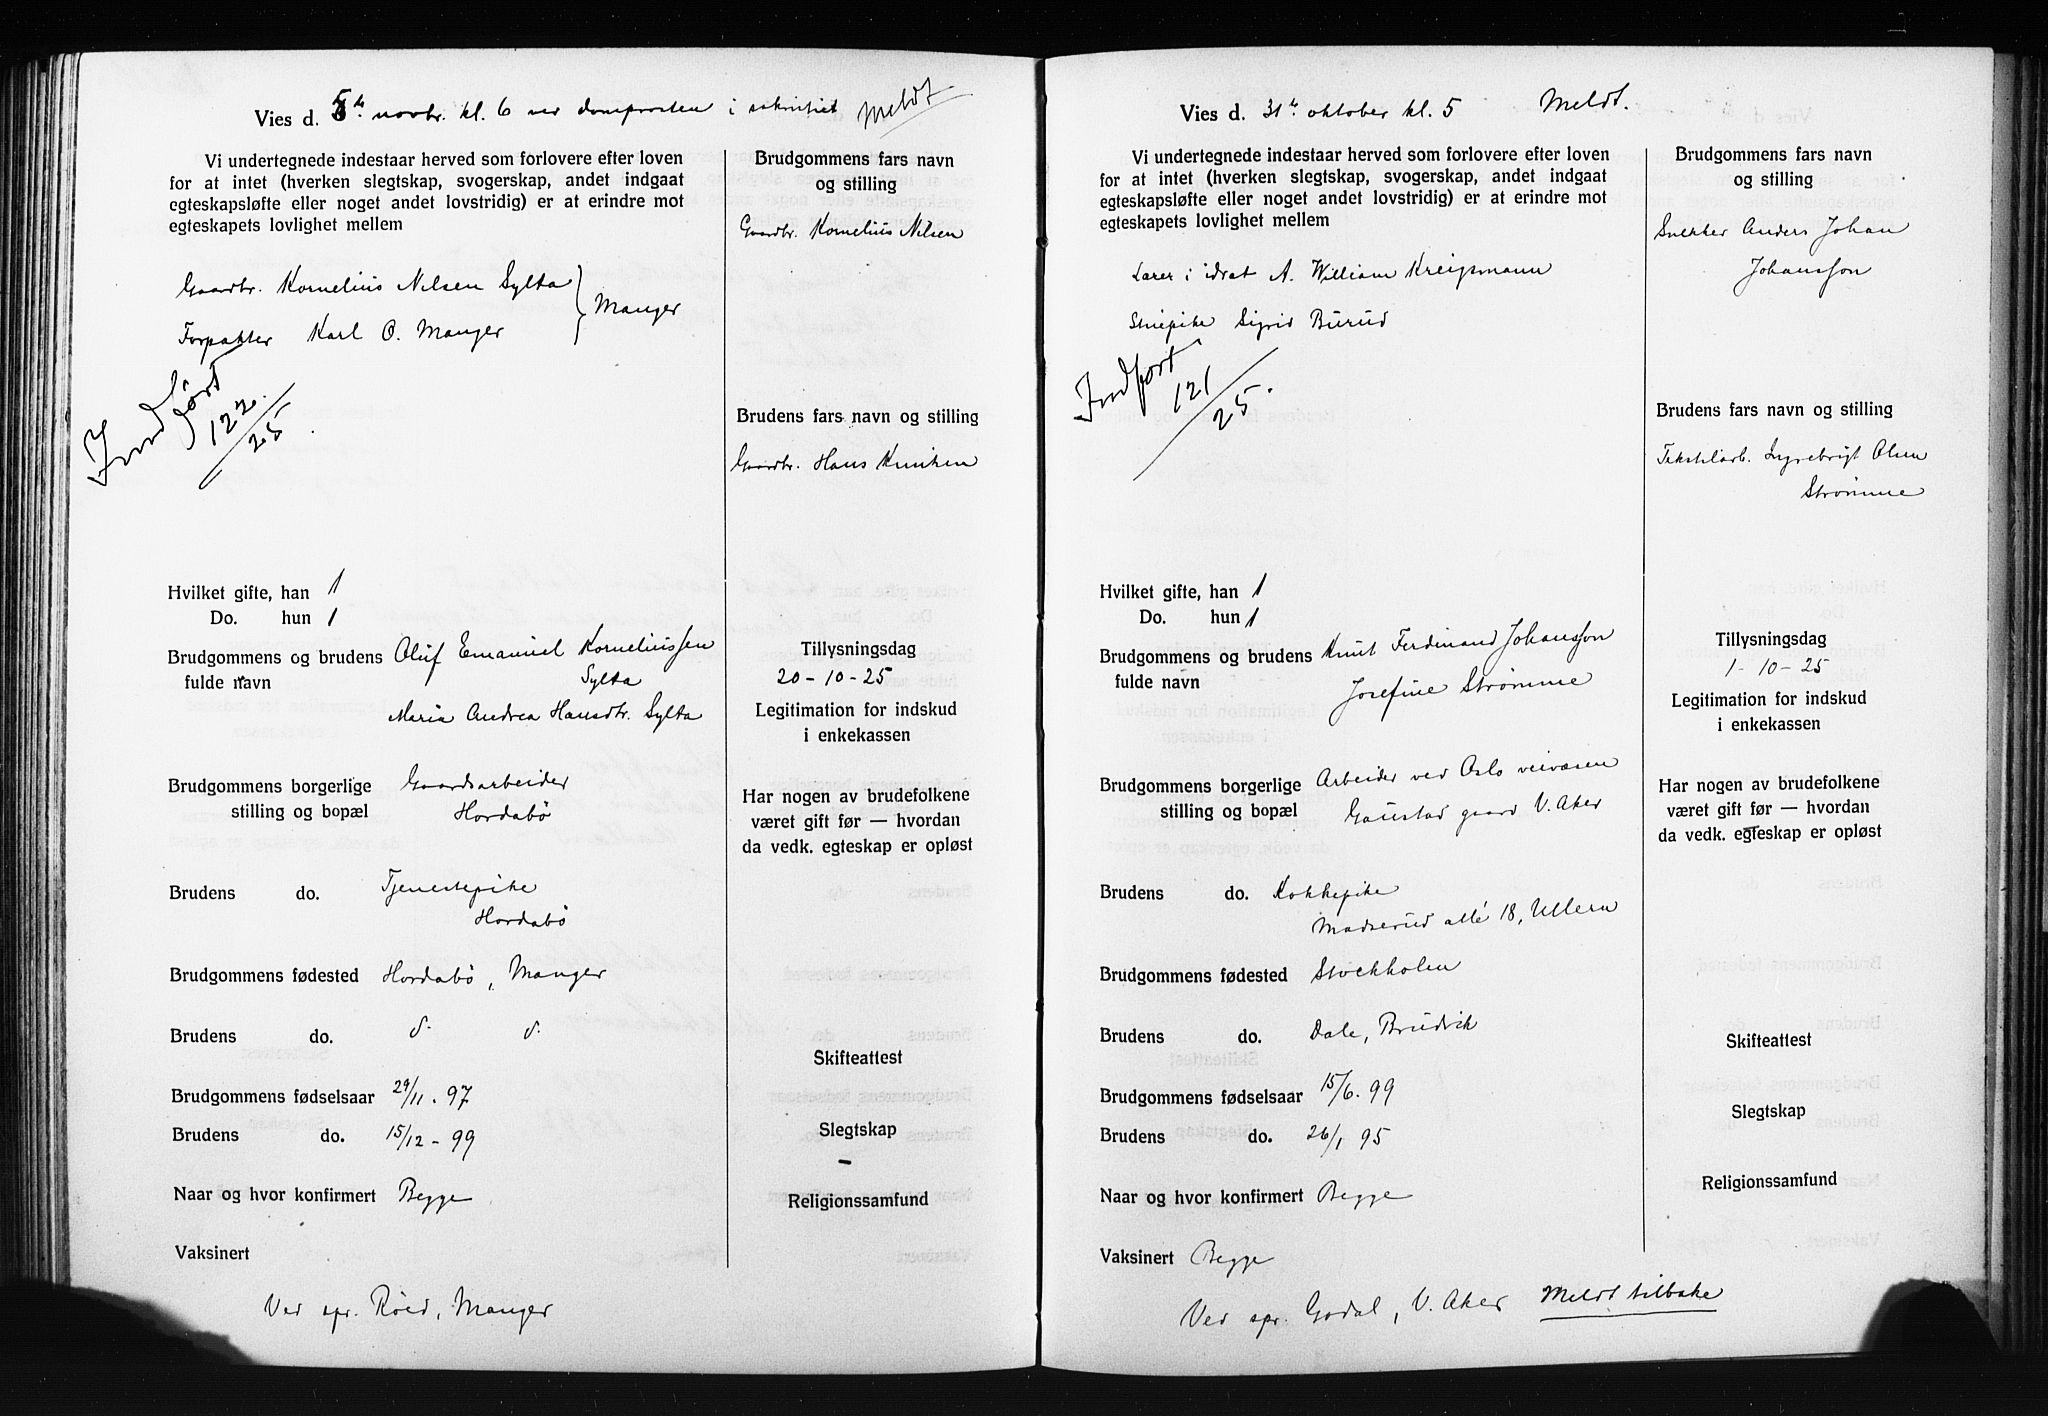 Vies d. 5te novbr. kl. 6 ved domprosten i sakristiet Meldt
Vi undertegnede indestaar herved som forlovere efter loven
for at intet (hverken slegtskap, svogerskap, andet indgaat
egteskapsløfte eller noget andet lovstridig) er at erindre mot
egteskapets lovlighet mellem
Gaardbr. Kornelius Nilsen Sylta
Forpakter Karl O. Manger
Manger
Indført
122
25
Brudgommens fars navn
og stilling
Gaardbr. Kornelius Nilsen
Brudens fars navn og stilling
Gaardbr. Hans
Hvilket gifte, han 1
Do. hun 1
Brudgommens og brudens Oluf Emanuel Korneliussen
fulde navn Sylta
Maria Andrea Hansdtr. Sylta
Tillysningsdag
20-10-25
Legitimation for indskud
i enkekassen
Brudgommens borgerlige Gaardsarbeider
stilling og bopæl Hordabø
Har nogen av brudefolkene
været gift før — hvordan
da vedk. egteskap er opløst
Brudens do. Tjenestepike
Hordabø
Brudgommens fødested Hordabø, Manger
Brudens do. d. d.
Skifteattest
Brudgommens fødselsaar 29/11. 97
Brudens do. 15/12 - 99
Slegtskap
—
Naar og hvor konfirmert Begge
Religionssamfund
Vaksinert
Ved spr. Røed, Manger
Vies d. 31te oktober kl. 5 Meldt.
Vi undertegnede indestaar herved som forlovere efter loven
for at intet (hverken slegtskap, svogerskap, andet indgaat
egteskapsløfte eller noget andet lovstridig) er at erindre mot
egteskapets lovlighet mellem
Lærer i idræt A. William Kreigsmann
Stuepike Sigrid Burud
Indført
121
25.
Brudgommens fars navn
og stilling
Snekker Anders Johan
Johansson
Brudens fars navn og stilling
Tekstilarb. Ingebrigt Olsen
Strømme
Hvilket gifte, han 1
Do. hun 1
Brudgommens og brudens Knut Ferdinand Johansson
fulde navn Josefine Strømme
Tillysningsdag
1-10-25
Legitimation for indskud
i enkekassen
Brudgommens borgerlige Arbeider ved Oslo veivæsen
stilling og bopæl Gaustad gaard V. Aker
Har nogen av brudefolkene
været gift før — hvordan
da vedk. egteskap er opløst
Brudens do. Kokkepike
Madserud allé 18, Ullern
Brudgommens fødested Stockholm
Brudens do. Dale, Bruvik
Skifteattest
Brudgommens fødselsaar 15/6. 99
Brudens do. 26/1 95
Slegtskap
Naar og hvor konfirmert Begge
Religionssamfund
Vaksinert Begge
Ved spr. Godal, V. Aker Meldt tilbake